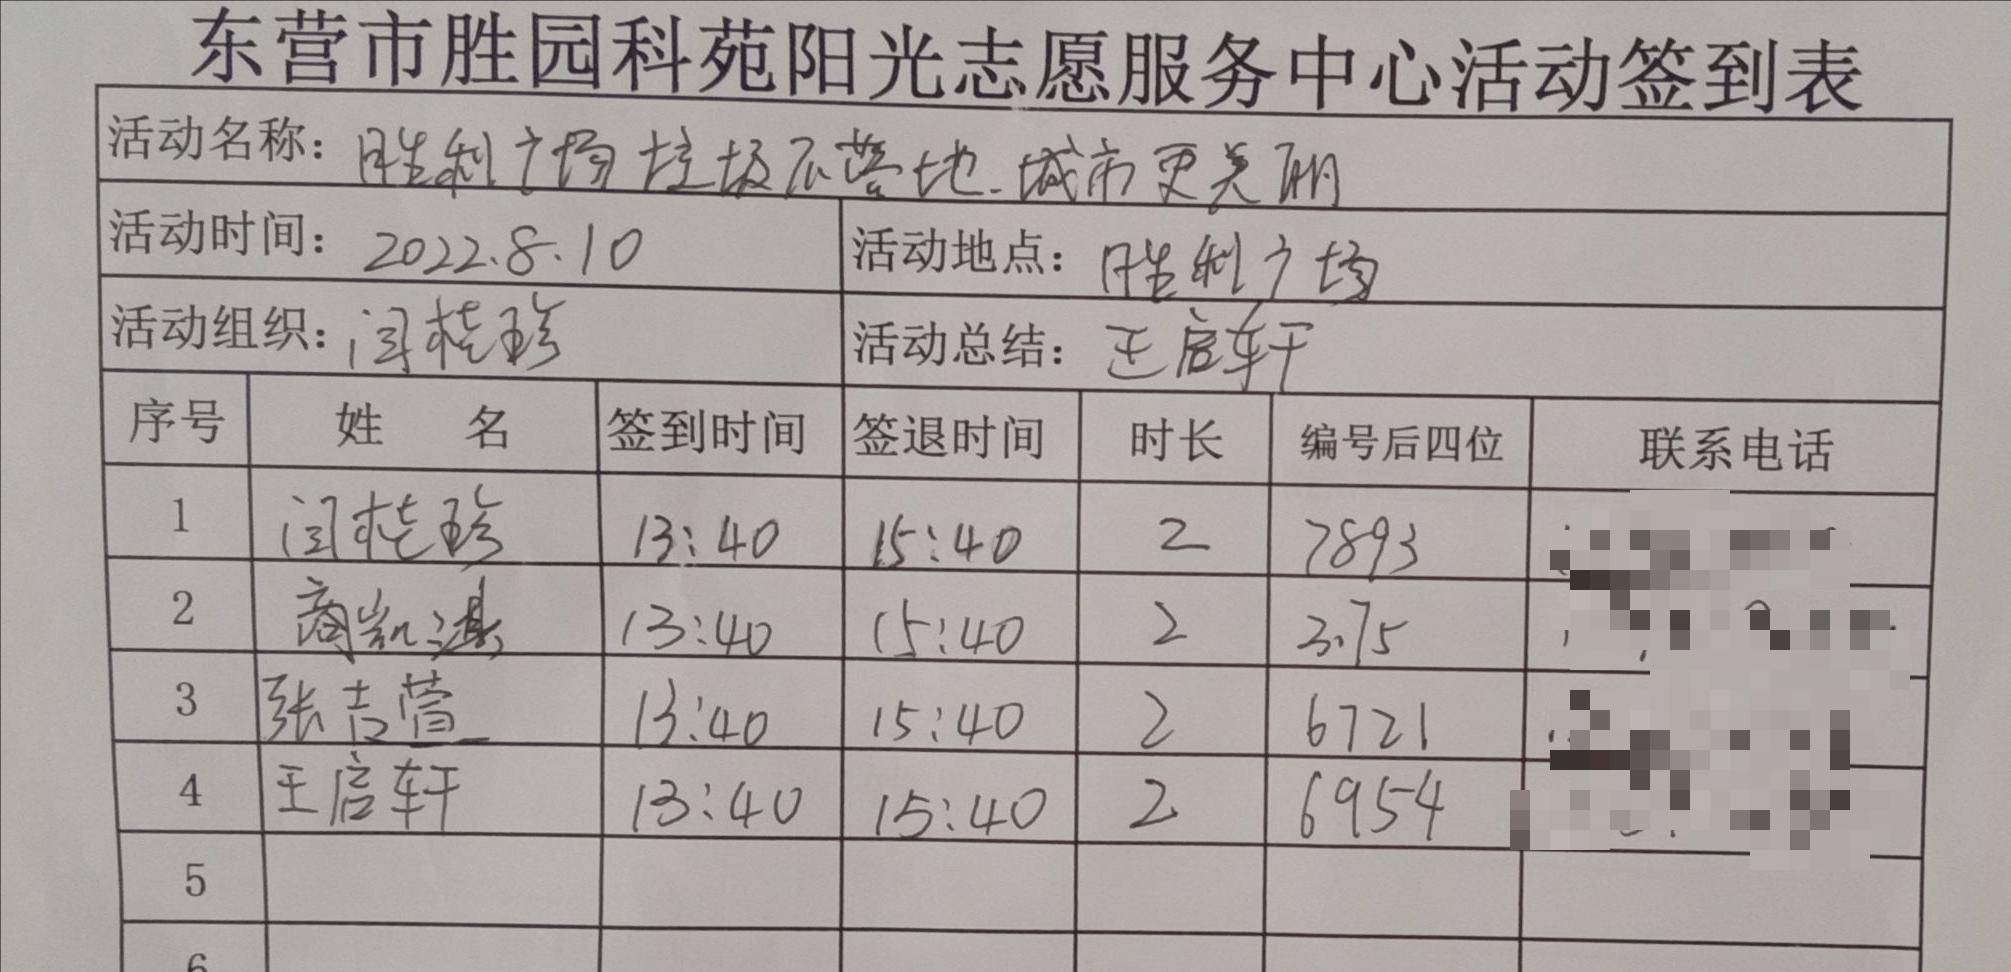 东营市胜园科苑阳光志愿服务中心活动签到表
活动名称：胜利广场垃圾不落地.城市更美丽
活动时间：2022.8.10 活动地点：胜利广场
活动组织：闫桂珍 活动总结：王启轩
序号 姓 名 签到时间 签退时间 时长 编号后四位 联系电话
1 闫桂珍 13:40 15:40 2 7893
2 商凯 13:40 15:40 2
3 张吉萱 13:40 15:40 2 6721
4 王启轩 13:40 15:40 2 6954
5
6